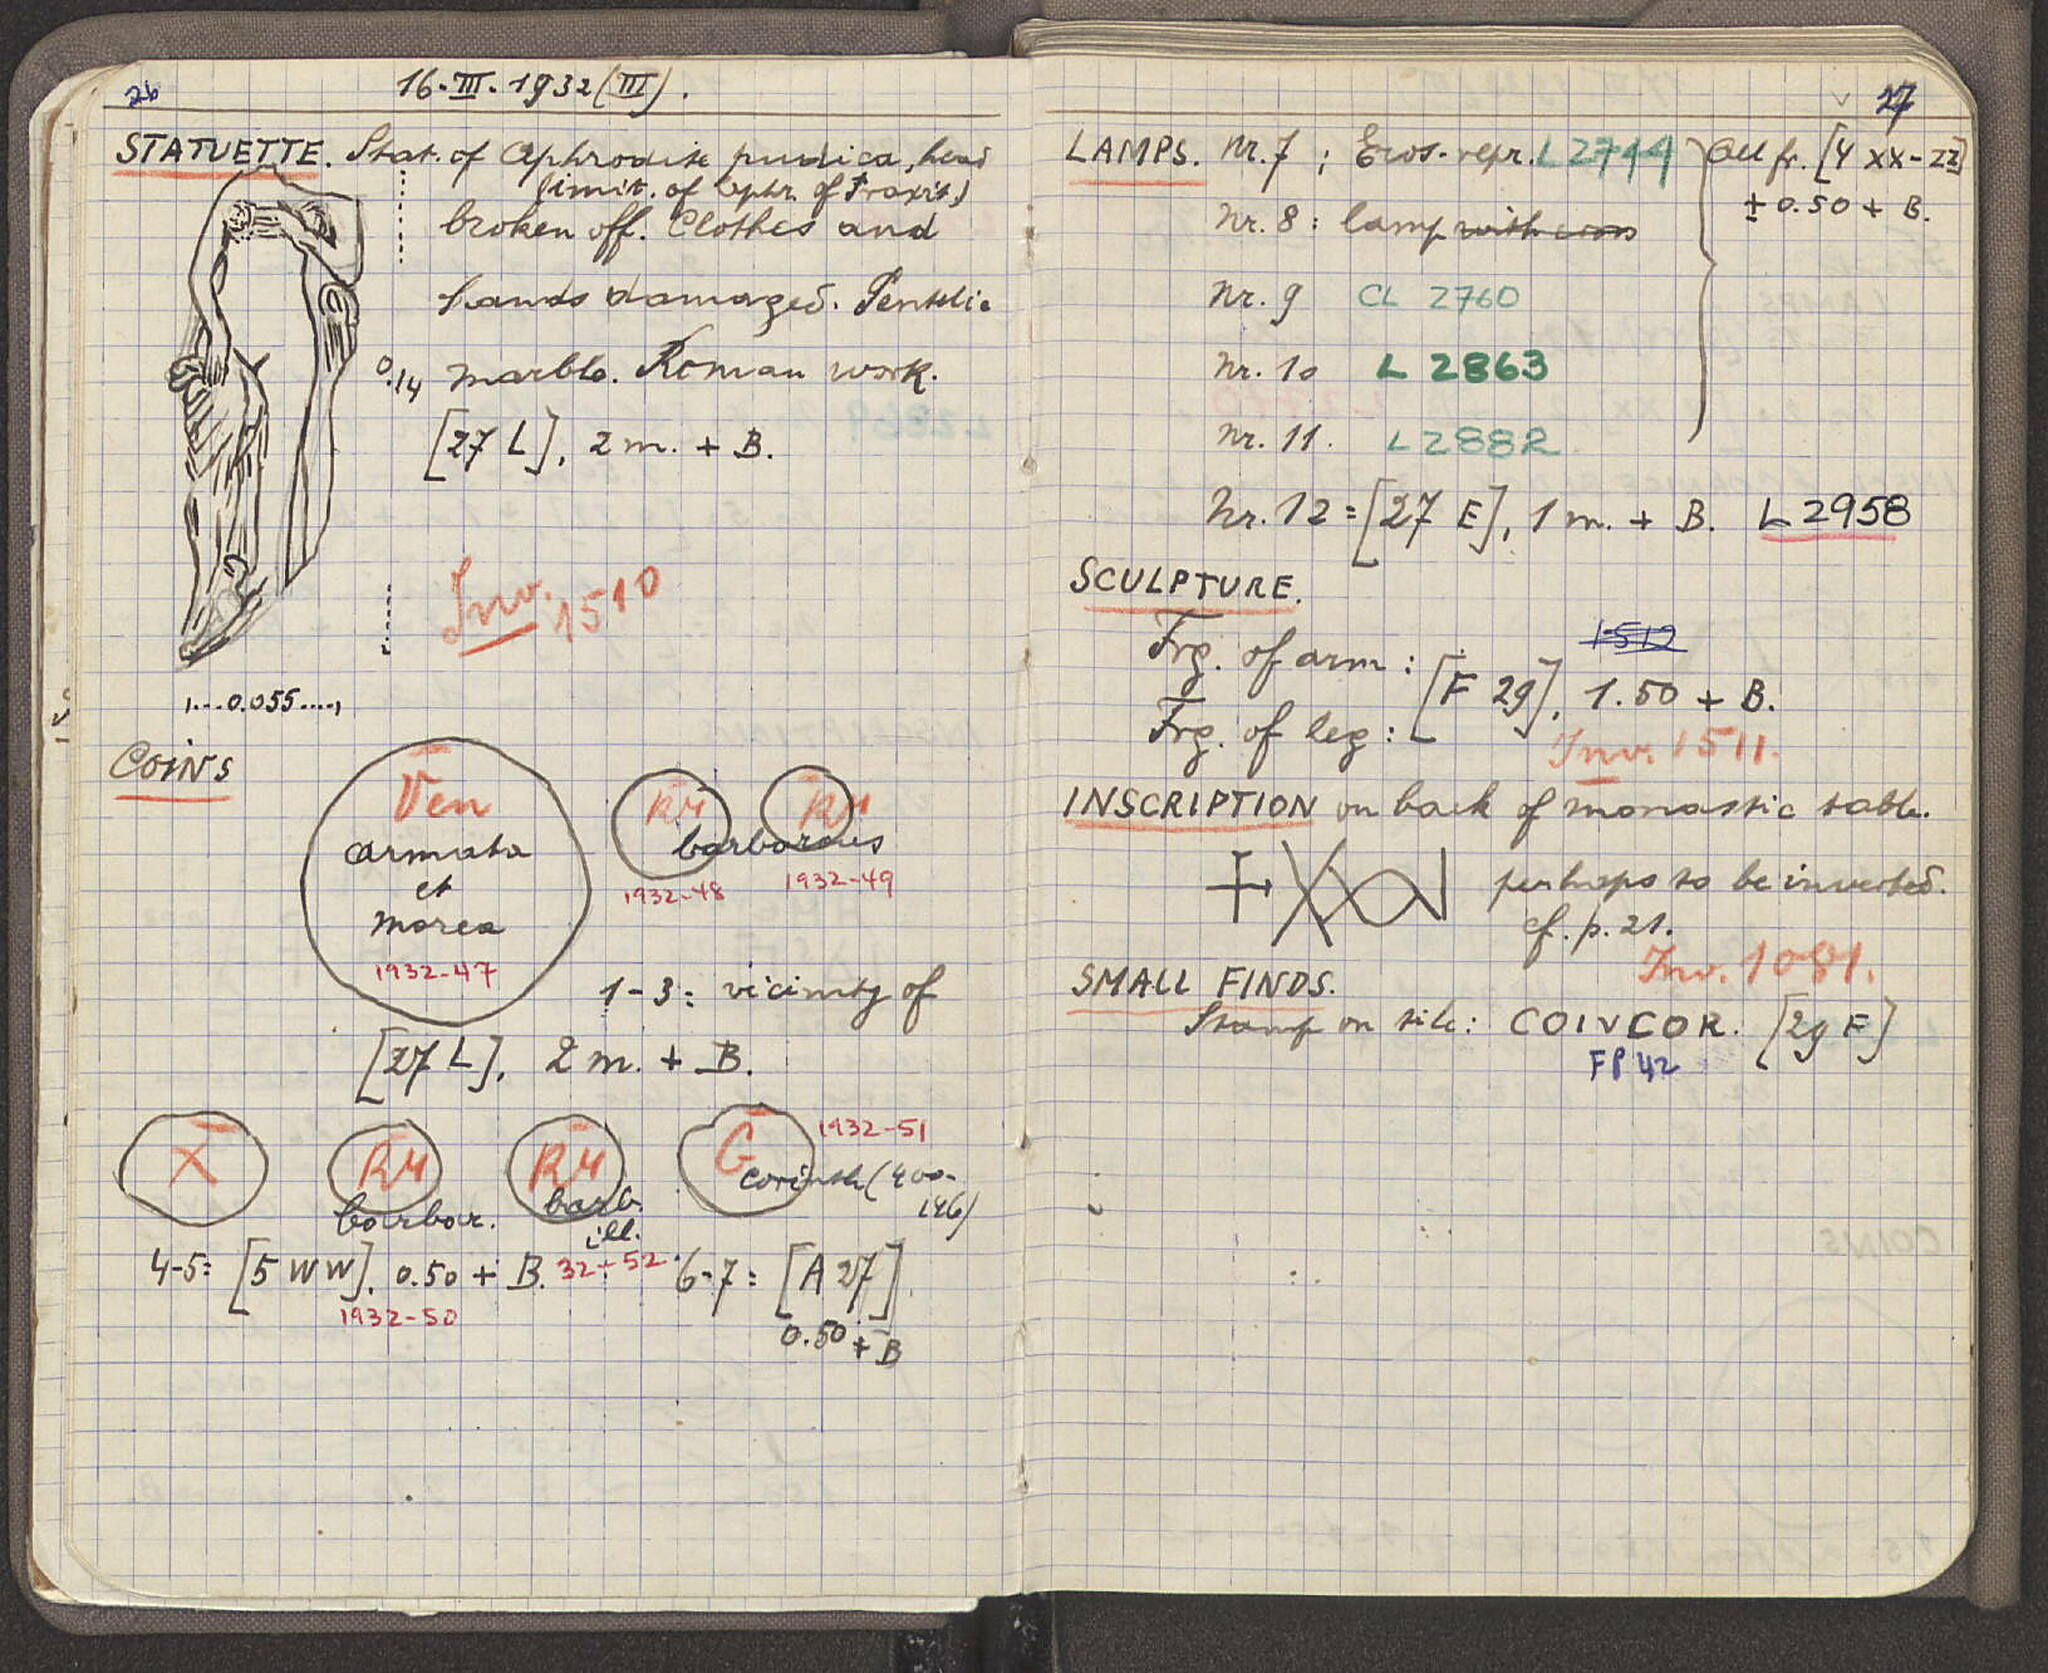 26
16-III-1932 (III).
STATUETTE. Stat. of Aphrodite pudica, head
(imit. of Aphr. of Praxit.)
broken off. Clothes and
hands damaged. Pentelic
0.14 marble. Roman work.
[27 L], 2 m. + B.
Inv. 1510
0.055
COINS
Ven
armata
et
morea
1932-47
RM RM
barbarous
1932-48 1932-49
1-3: vicinity of
[27 L], 2 m. + B.
X RM RM G 1932-51
corinth (400-
146)
barbar. barb.
ill.
4-5= [5 WW]. 0.50 + B. 32-52 6-7= [A 27]
1932-50
0.50 + B
27
LAMPS. Nr. 7 ; Eros-repr. L 2744 All fr. [4 XX-ZZ]
± 0.50 + B.
Nr. 8 : lamp with
Nr. 9 CL 2760
Nr. 10 L 2863
Nr. 11. L 2882
Nr. 12 = [27 E], 1 m. + B. L 2958
SCULPTURE.
1512
Frg. of arm :
[F 29], 1.50 + B.
Frg. of leg :
Inv. 1511.
INSCRIPTION on back of monastic table.
perhaps to be inverted.
cf. p. 21.
Inv. 1081.
SMALL FINDS.
Stamp on tile: COIVCOR. [29 F]
FP 42